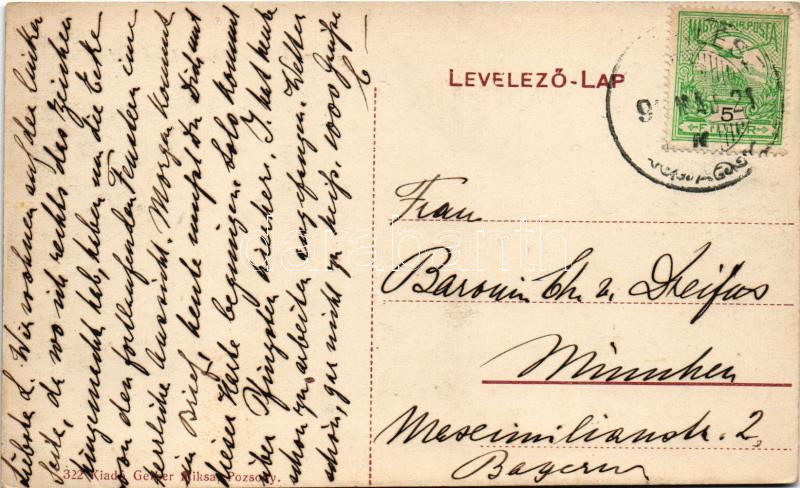 LEVELEZŐ-LAP
MAGYAR KIR. POSTA
5
FILLÉR
21
Frau
Baronin Ch. v. Dreifus
München
Maximilianstr. 2
Bayern
Liebste L. Wir wohnen auf der linken
Seite, da, wo ich rechts das Zeichen
hingemacht hab, haben um die Ecke
von den fortlaufenden Fenstern eine
herrliche Aussicht. Morgen kommt
ein Brief, heute musst du dich mit
dieser Karte begnügen. Solo kommt
über Pfingsten hierher. J. hat heute
schon zu arbeiten angefangen. Wetter
schön, gar nicht zu heiss. 1000 Küsse
322 Kiadó Geiger Miksa, Pozsony.
darabanth